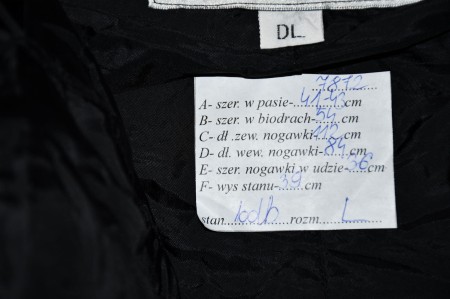 DL.
7872
A- szer. w pasie-41-43cm
B- szer. w biodrach-54cm
C- dł .zew. nogawki 112cm
D- dl. wew. nogawki-84cm
E- szer. nogawki w udzie-36cm
F- wys stanu-39cm
stan rozm. L